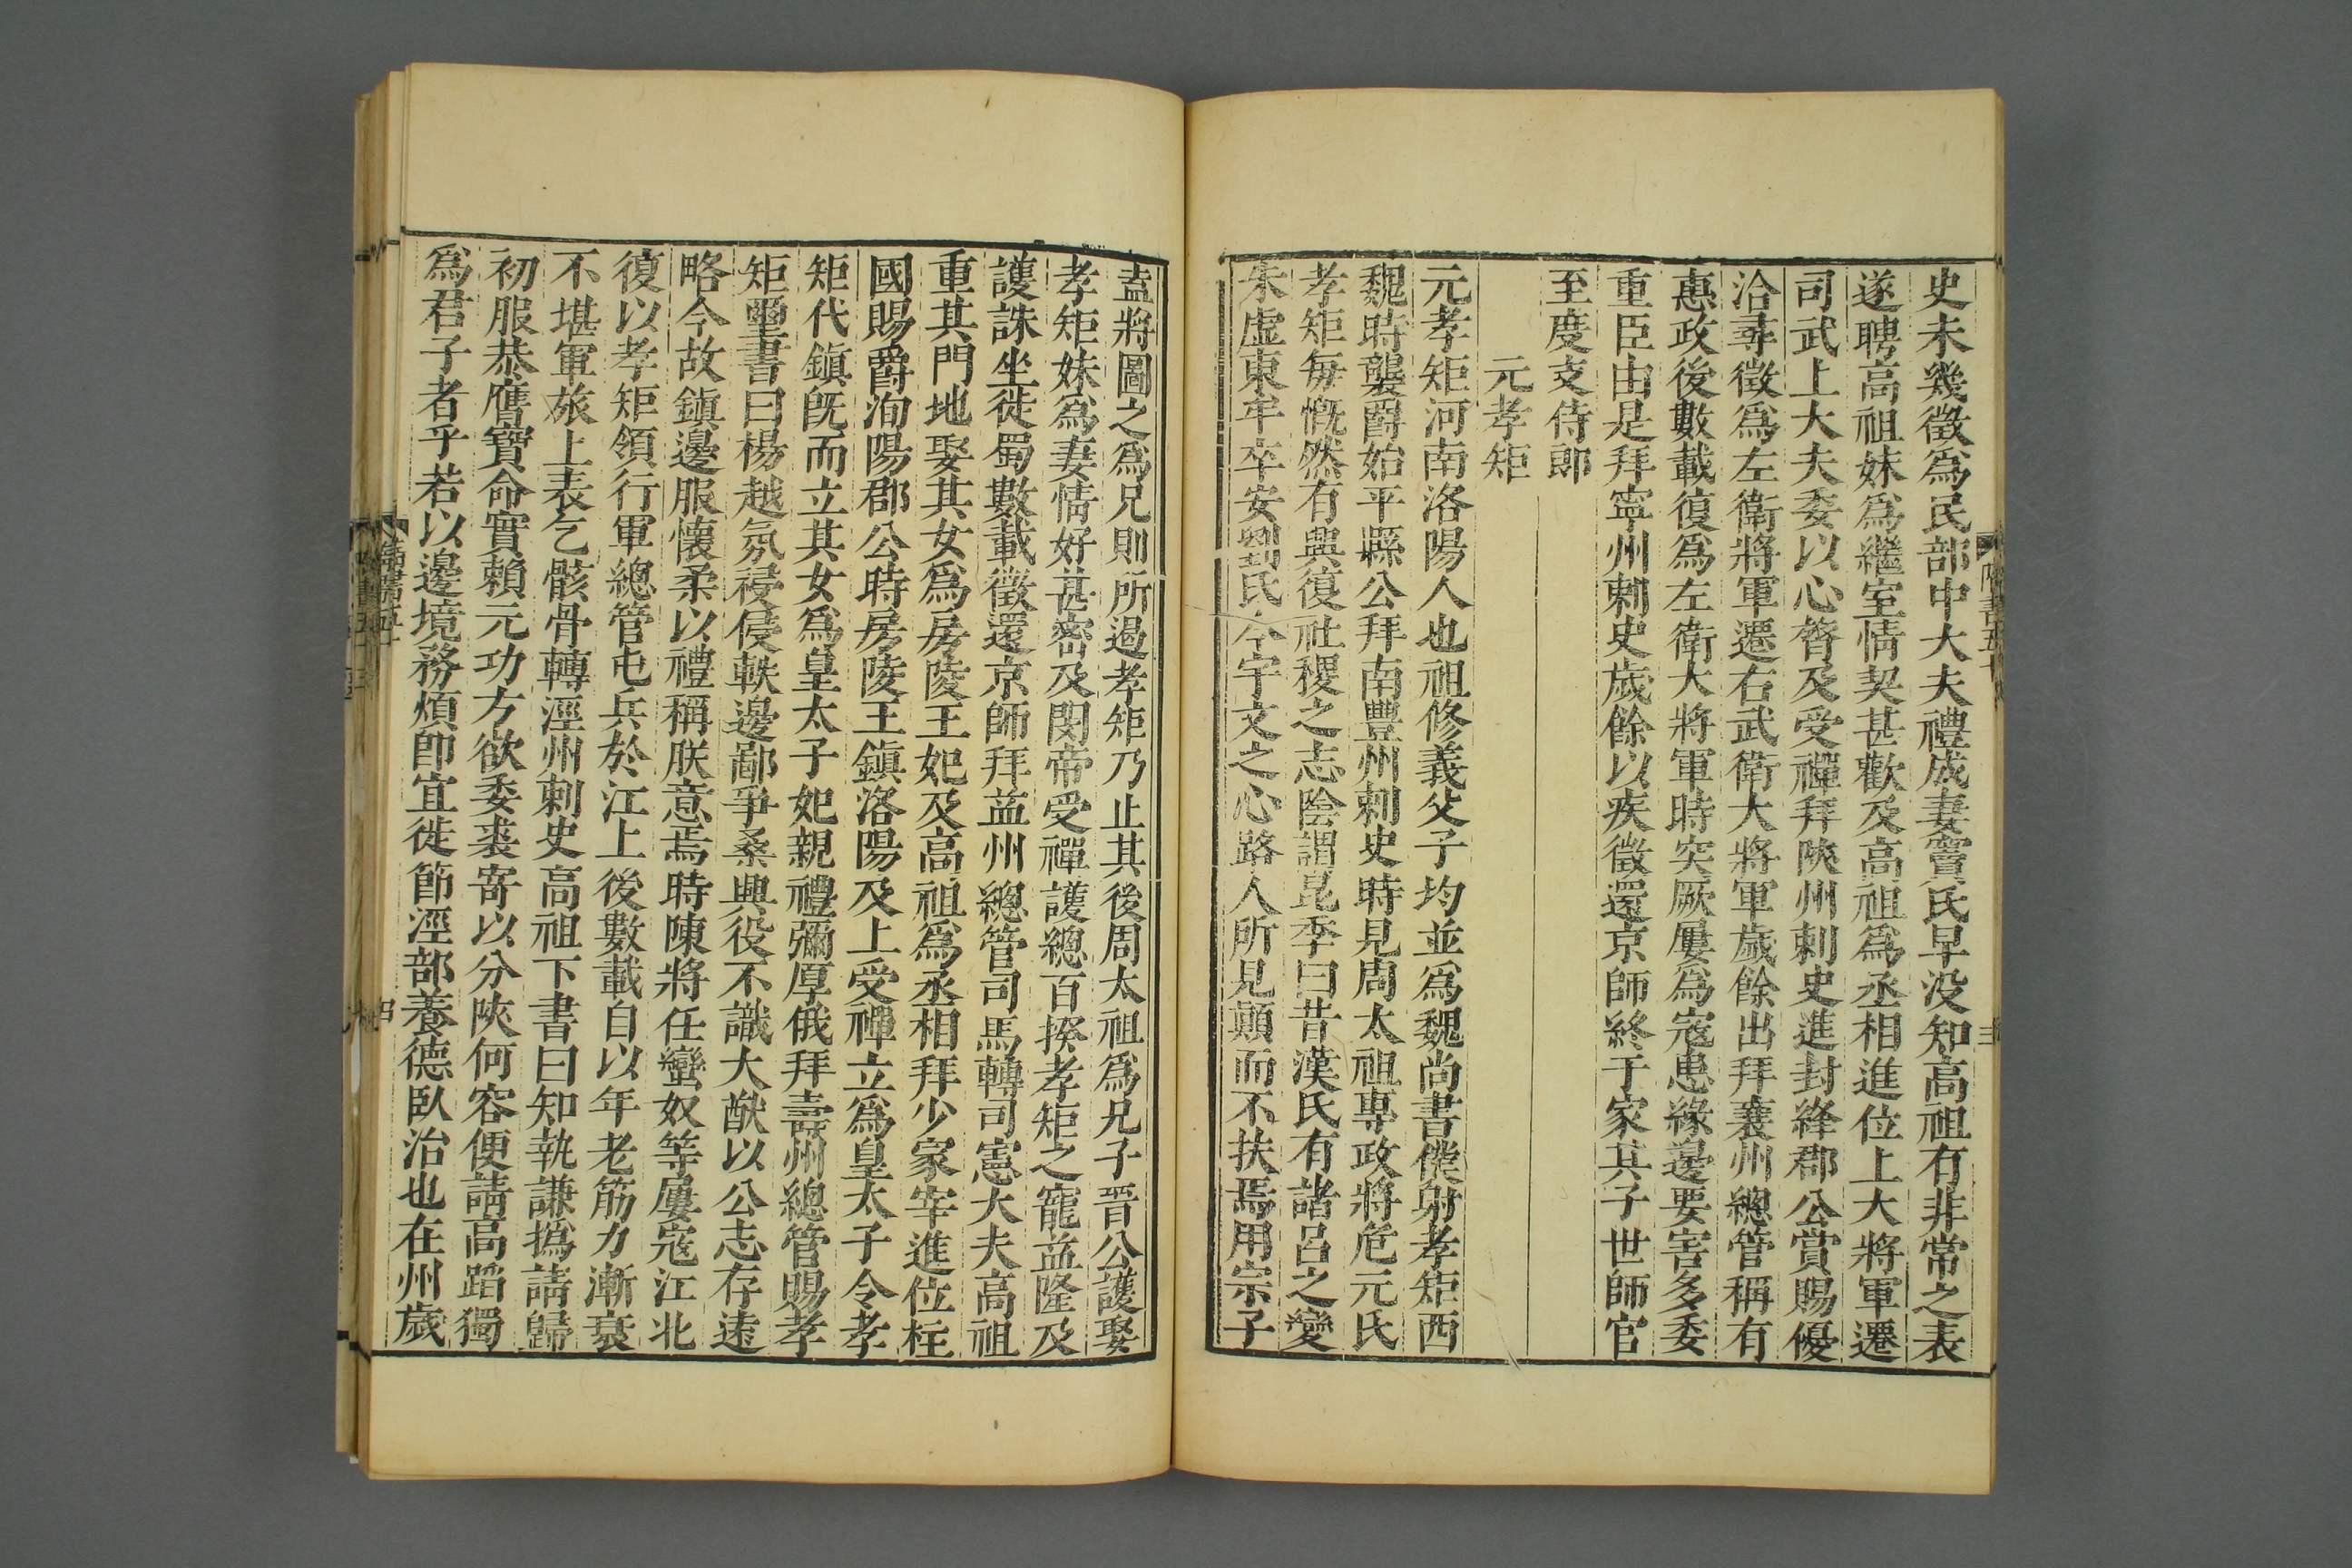 史未幾徵爲民部中大夫禮成妻竇氏早没知高祖有非常之表
遂聘高祖妹爲繼室情契甚歡及高祖爲丞相進位上大將軍遷
司武上大夫委以心膂及受禪拜陝州刺史進封絳郡公賞賜優
洽尋徵爲左衛將軍遷右武衛大將軍歲餘出拜襄州總管稱有
惠政後數載復爲左衛大將軍時突厥屢爲寇患緣邊要害多委
重臣由是拜寧州刺史歲餘以疾徵還京師終于家其子世師官
至度支侍郎
元孝矩
元孝矩河南洛陽人也祖修義父子均並爲魏尚書僕射孝矩西
魏時襲爵始平縣公拜南豐州刺史時見周太祖專政將危元氏
孝矩每慨然有興復社稷之志陰謂昆季曰昔漢氏有諸呂之變
朱虛東牟卒安劉氏今宇文之心路人所見顛而不扶焉用宗子
盍將圖之爲兄則所過孝矩乃止其後周太祖爲兄子晉公護娶
孝矩妹爲妻情好甚密及閔帝受禪護總百揆孝矩之寵益隆及
護誅坐徙蜀數載徵還京師拜益州總管司馬轉司憲大夫高祖
重其門地娶其女爲房陵王妃及高祖爲丞相拜少冢宰進位柱
國賜爵洵陽郡公時房陵王鎮洛陽及上受禪立爲皇太子令孝
矩代鎮既而立其女爲皇太子妃親禮彌厚俄拜壽州總管賜孝
矩璽書曰楊越氛祲侵軼邊鄙爭桑興役不識大猷以公志存遠
略今故鎮邊服懷柔以禮稱朕意焉時陳將任蠻奴等屢寇江北
復以孝矩領行軍總管屯兵於江上後數載自以年老筋力漸衰
不堪軍旅上表乞骸骨轉涇州刺史高祖下書曰知執謙撝請歸
初服恭膺寶命實賴元功方欲委裘寄以分陝何容便請高蹈獨
爲君子者乎若以邊境務煩即宜徙節涇部養德臥治也在州歲